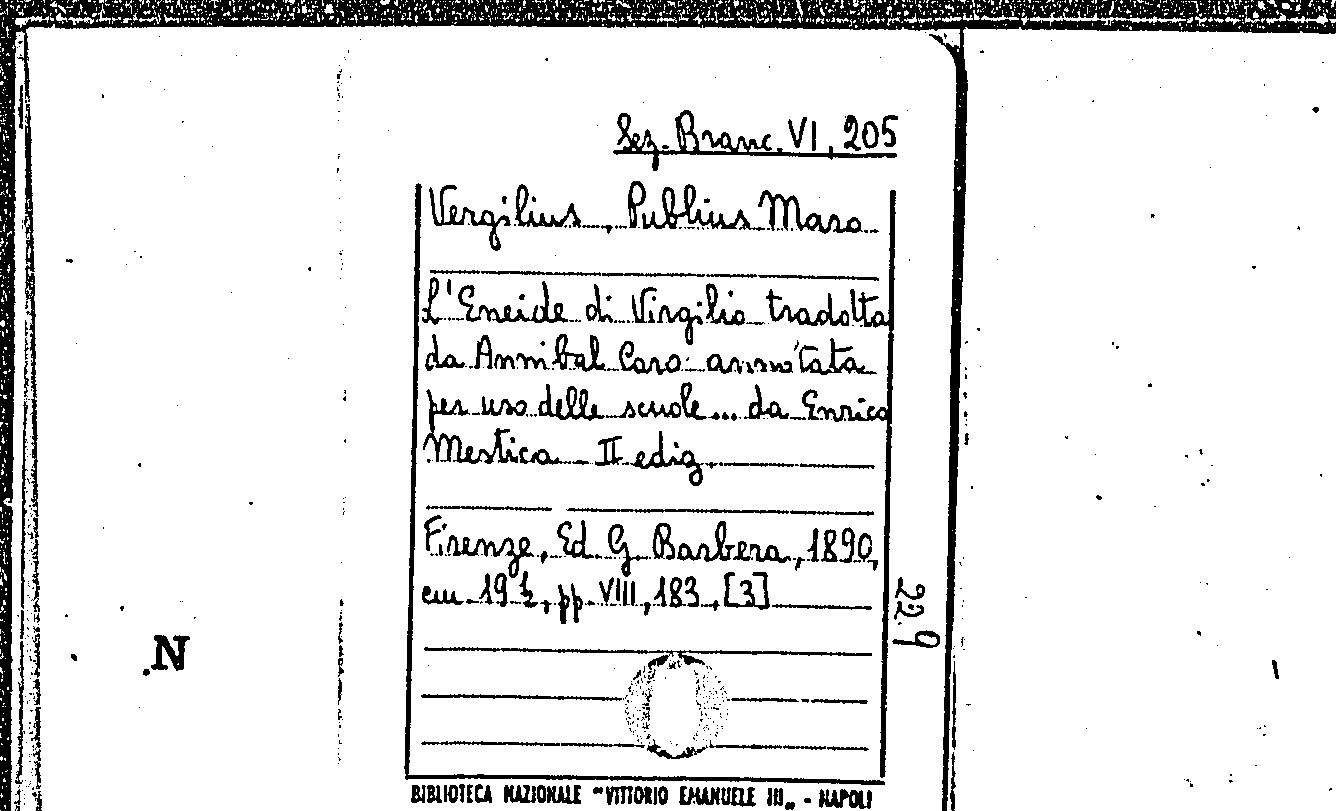 Sez. Branc. VI, 205
Vergilius, Publius Maro
L'Eneide di Virgilio tradotta
da Annibal Caro annotata
per uso delle scuole... da Enrico
Mestica II ediz.
Firenze, Ed. G. Barbera, 1890,
cm. 19½, pp. VIII, 183, [3]
229
N
BIBLIOTECA NAZIONALE "VITTORIO EMANUELE III" - NAPOLI